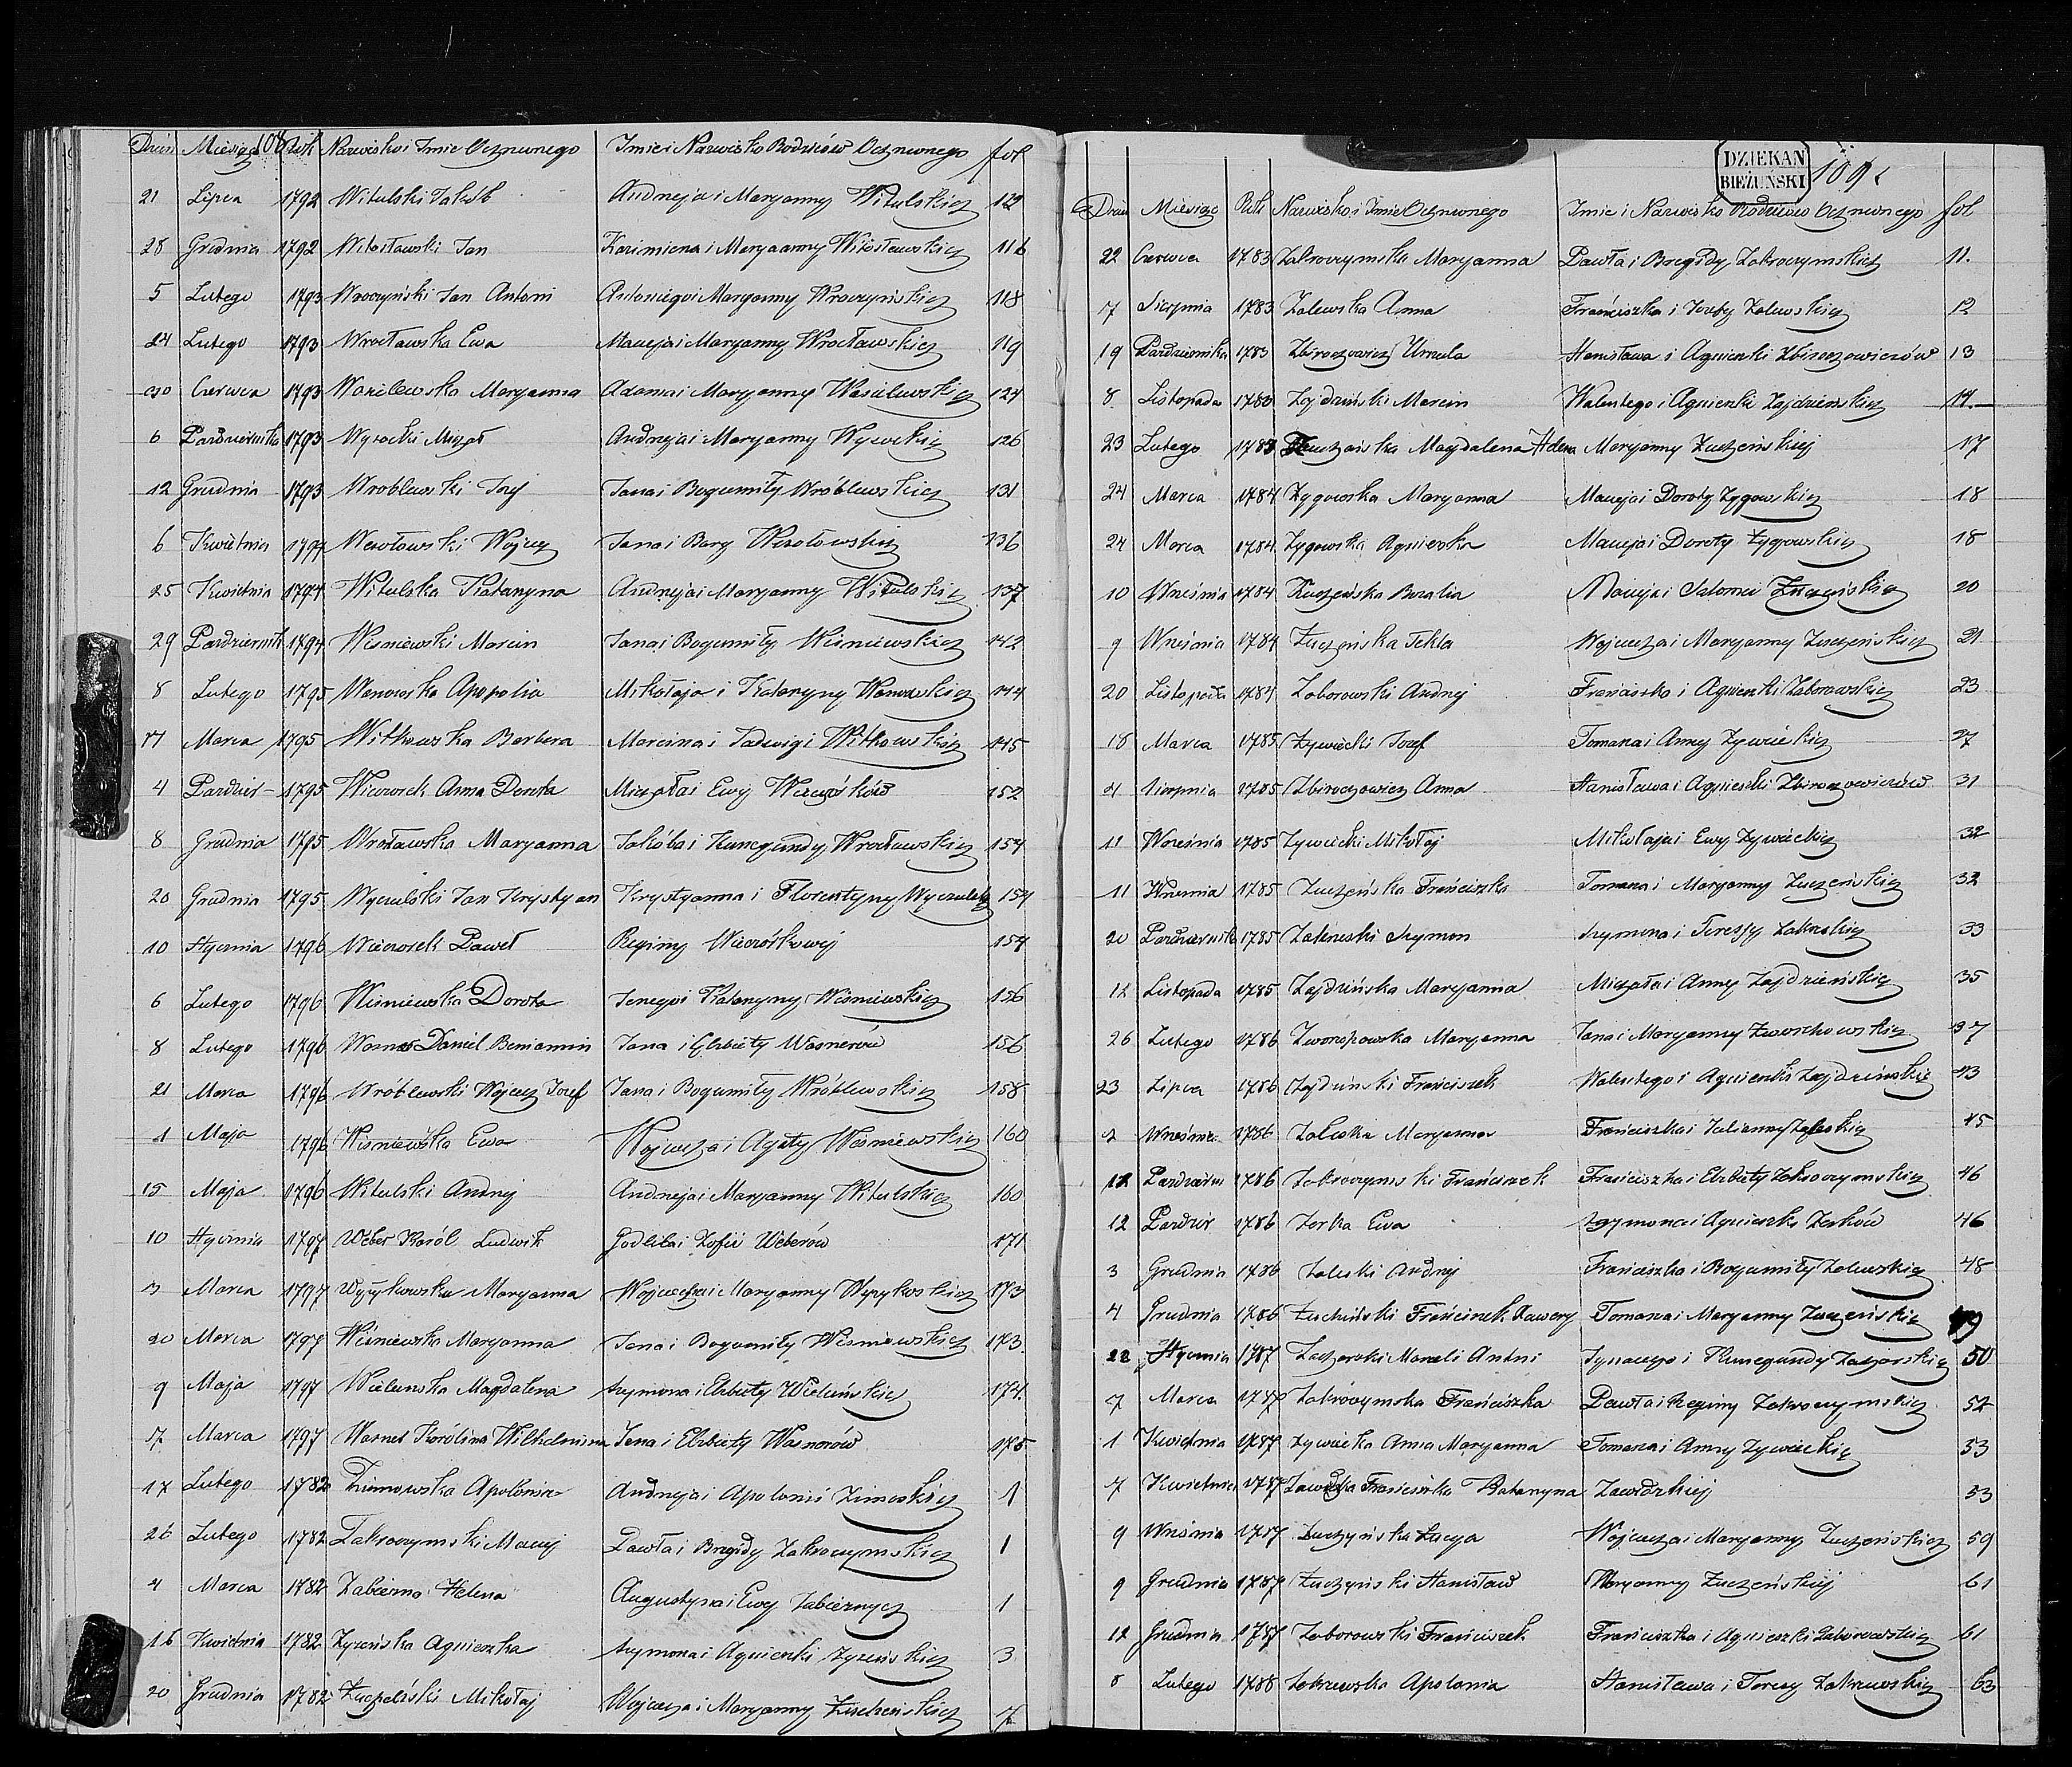 Dzień Miesiąc 108 Rok Nazwisko i Imie Ochrzconego Imie i Nazwisko Rodziców Ochrzconego fol
21 Lipca 1792 Witulski Jakób Andrzeja i Maryanny Witulskich 112
28 Grudnia 1792 Witosławski Jan Kazimierza i Maryanny Witosławskich 116
5 Lutego 1793 Wroczyński Jan Antoni Antoniego i Maryanny Wroczyńskich 118
24 Lutego 1793 Wrocławska Ewa Macieja i Maryanny Wrocławskich 119
30 Czerwca 1793 Wasilewska Maryanna Adama i Maryanny Wasilewskich 124
6 Październik 1793 Wysocki Michał Andrzeja i Maryanny Wysockich 126
12 Grudnia 1793 Wroblewski Jozef Jana i Bogumiły Wróblewskich 131
6 Kwietnia 1794 Wesołowski Wojciech Jana i Wesołowskich 136
25 Kwietnia 1794 Witulska Katarzyna Andrzeja i Maryanny Witulskich 137
29 Październik 1794 Wiśniewski Marcin Jana i Bogumiły Wiśniewskich 142
8 Lutego 1795 Apopolia Mikołaja i Katarzyny 144
Marca 1795 Witkowska Barbara Marcina i Jadwigi Witkowskich 145
4 Paździer- 1795 Wieczorek Anna Dorota Michała i Ewy Wieczorków 152
8 Grudnia 1795 Wrocławska Maryanna Jakóba i Kunegundy Wrocławskich 154
20 Grudnia 1795 Wyczulski Jan Krystyan Krystyanna i Florentyny Wyczulskich 154
10 Stycznia 1796 Wieczorek Paweł Reginy Wieczórkowej 154
6 Lutego 1796 Wiśniewska Dorota Katarzyny Wiśniewskich 156
8 Lutego 1796 Wasner Daniel Beniamin Jana i Elzbiety Wasnerów 156
21 Marca 1796 Wróblewski Wojciech Jozef Jana i Bogumiły Wróblewskich 158
1 Maja 1796 Wiśniewska Ewa Wojciecha i Agaty Wiśniewskich 160
15 Maja 1796 Witulski Andrzej Andrzeja i Maryanny Witulskich 160
10 Stycznia 1797 Weber Karól Ludwik Godliba i Zofii Weberów 171
3 Marca 1797 Wyrykowska Maryanna Wojciecha i Maryanny Wyrykoskich 173
20 Marca 1797 Wiśniewska Maryanna Jana i Bogumiły Wiśniewskich 173
9 Maja 1797 Wieluńska Magdalena Szymona i Elzbiety Wieluńskich 174.
17 Marca 1797 Wasner Karólina Wilhelmina Jana i Elzbiety Wasnerów 175
17 Lutego 1782 Zimowska Apolonia Andrzeja i Apolonii Zimoskich 1
26 Lutego 1782 Zakroczymski Maciej Pawła i Brygidy Zakroczymskich 1
4 Marca 1782 Zabierna Helena Augustyna i Ewy Zabiernych 1
16 Kwietnia 1782 Zyzeńska Agnieszka Szymona i Agnieszki Zyzeńskich 3
20 Grudnia 1782 Mikołaj Wojciecha i Maryanny 7
DZIEKAN
BIEŻUŃSKI
109
Dzień Miesiąc Rok Nazwisko i Imie Ochrzconego Imie i Nazwisko Rodziców Ochrzconego fol
22 Czerwca 1783 Zakroczymska Maryanna Pawła i Brygidy Zakroczymskich 11.
17 Sierpnia 1783 Zalewska Anna Franciszka i Jozefy Zalewskich 12
19 Października 1783 Zbirochowicz Urszula Stanisława i Agnieszki Zbirochowiczów 13
8 Listopada 1783 Zajdziński Marcin Walentego i Agnieszki Zajdzieńskich 14.
23 Lutego 1783 Magdalena Helena Maryanny Żuchęńskiej 17
24 Marca 1784 Zygowska Maryanna Macieja i Doroty Zygowskich 18
24 Marca 1784 Zygowska Agnieszka Macieja i Doroty Zygowskich 18
10 Września 1784 Żuchęńska Rozalia Macieja i Salomei Żuchęńskich 20
9 Września 1784 Żuchęńska Tekla Wojciecha i Maryanny Żuchęńskich 21
20 Listopada 1784 Zaborowski Andrzej Franciszka i Agnieszki Zaborowskich 23
18 Marca 1785 Żywiecki Jozef Tomasza i Anny Zywieckich 27
4 Sierpnia 1785 Zbirochowicz Anna Stanisława i Agnieszki Zbirochowiczów 31
11 Września 1785 Zywiecki Mikołaj Mikołaja i Ewy Zywieckich 32
11 Wrzesnia 1785 Żuchęńska Franciszka Tomasza i Maryanny Żuchęńskich 32
20 Październik 1785 Zakrzeski Szymon Szymona i Teressy Zakrzeskich 33
12 Listopada 1785 Zajdzińska Maryanna Michała i Anny Zajdzieńskich 35
26 Lutego 1786 Maryanna Jana i Maryanny 37
23 Lipca 1786 Zajdziński Franciszek Walentego i Agnieszki Zajdzińskich 43
2 Wrześnie 1786 Zaleska Maryanna Franciszka i Julianny Zaleskich 45
12 Paździer 1786 Zakroczymski Franciszek Franciszka i Elzbiety Zakroczymskich 46
12 Paździer 1786 Zorka Ewa Szymona i Agnieszki Zorków 46
3 Grudnia 1786 Zaleski Andrzej Franciszka i Bogumiły Zalewskich 48
4 Grudnia 1786 Żuchiński Franciszek Xawery Tomasza i Maryanny Żuchęńskich 49
22 Stycznia 1787 Antoni Ignacego i Kunegundy 50
7 Marca 1787 Zakroczymska Franciszka Pawła i Reginy Zakroczymskich 52
1 Kwietnia 1787 Zywiecka Anna Maryanna Tomasza i Anny Zywieckich 53
7 Kwietnia 1787 Zawidzka Franciszka Katarzyna Zawidzkiej 53
9 Wrześnie 1787 Żuchyńska Łucya Wojciecha i Maryanny Żuchęńskich 59
9 Grudnia 1787 Żuchyński Stanisław Maryanny Żuchęńskiej 61
12 Grudnia 1787 Zaborowski Franciszek Franciszka i Agnieszki Zaborowskich 61
8 Lutego 1788 Zakrzewska Apolonia Stanisława i Teresy Zakrzewskich 63